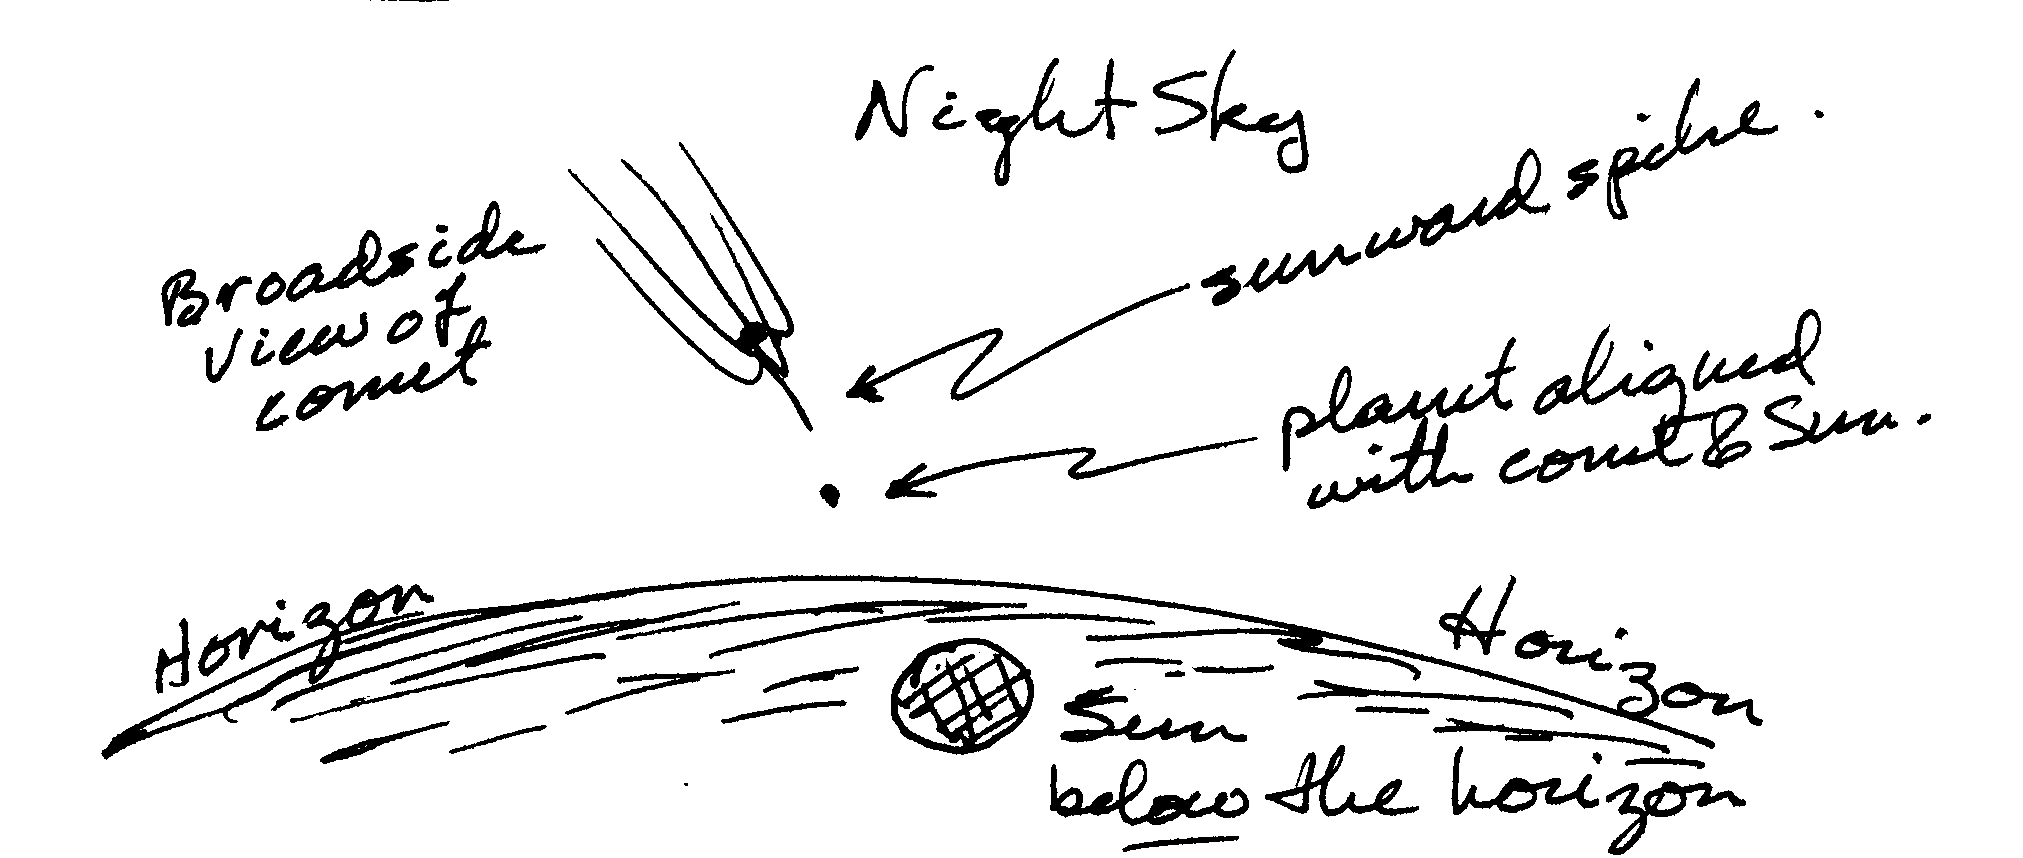 Night Sky
sunward spike.
Broadside
view of
comet
planet aligned
with comet & Sun.
Horizon
Horizon
Sun
below the horizon